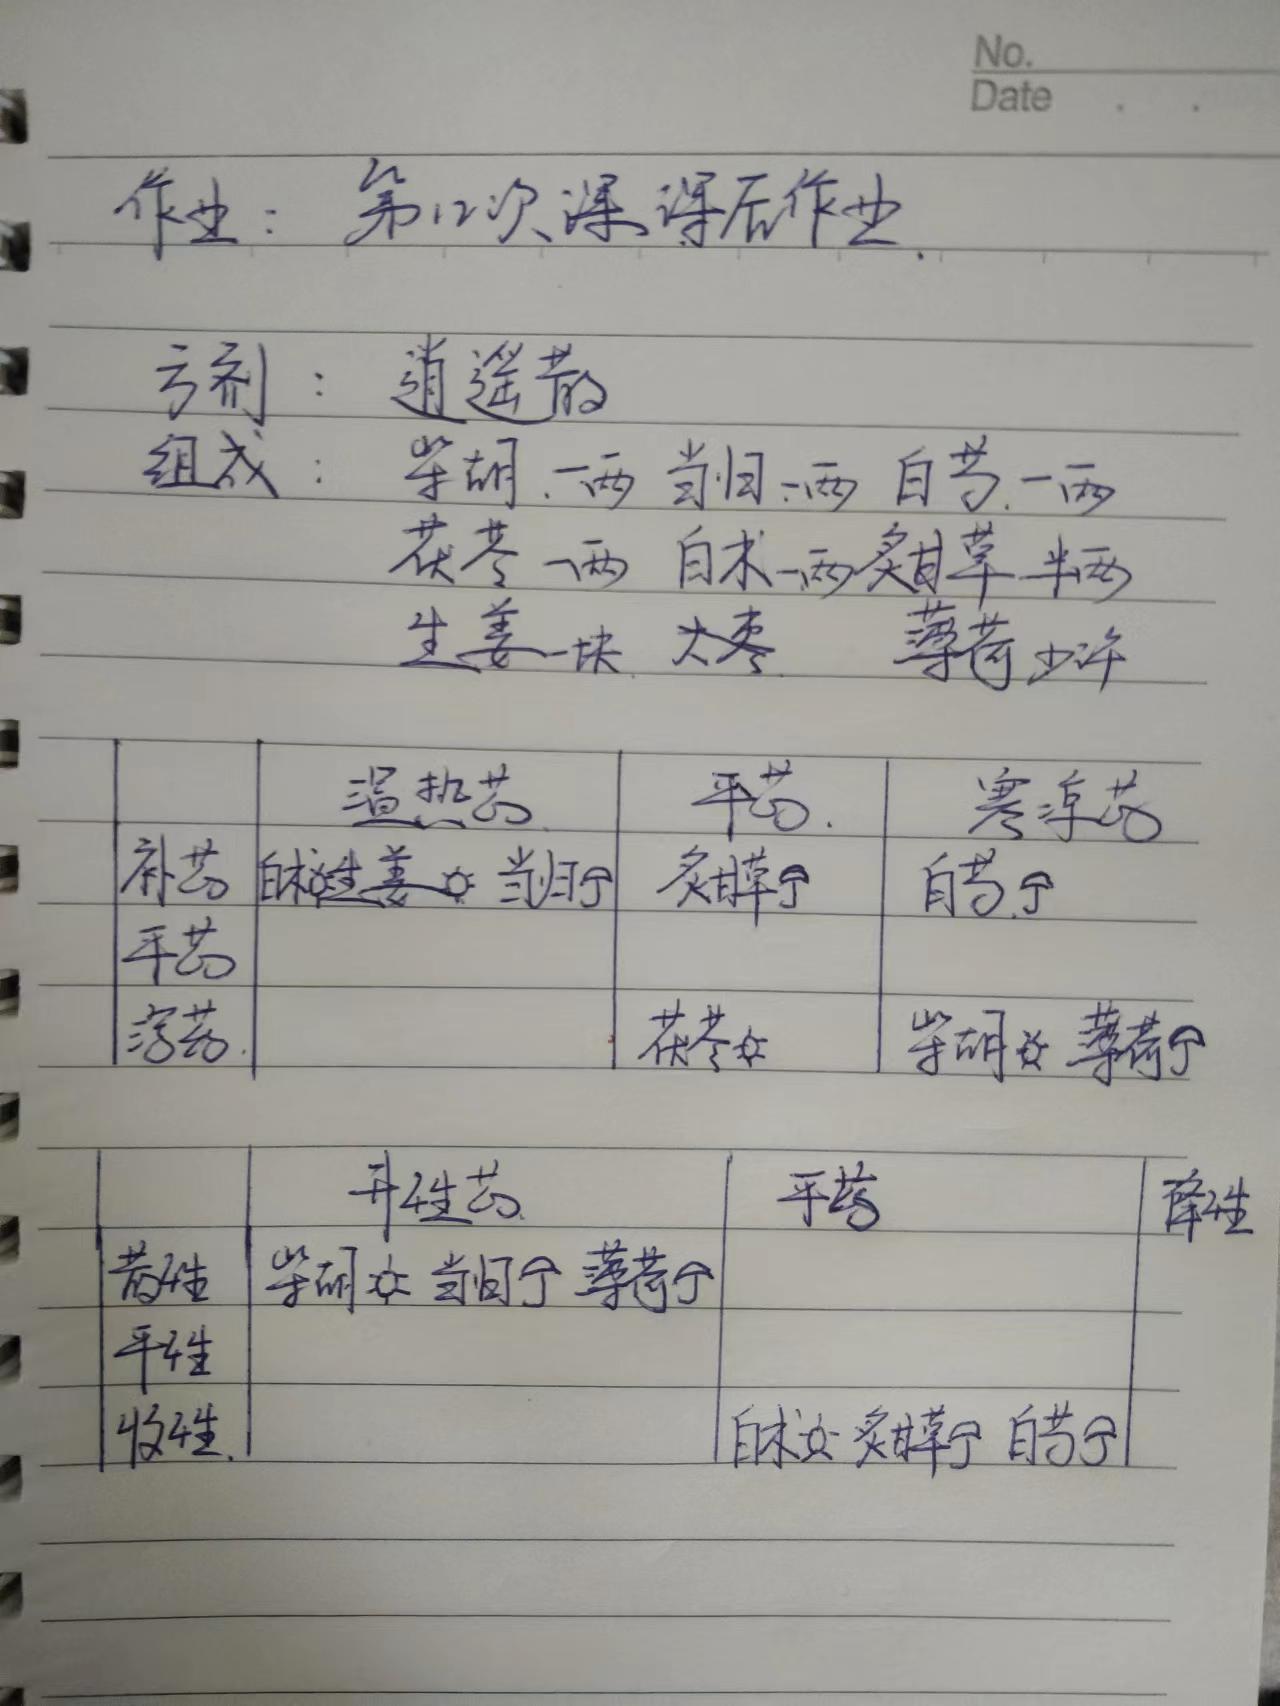 No.
Date
作业：第12次课课后作业.
方剂：逍遥散
组成：柴胡.一两 当归.一两 白芍.一两
茯苓一两 白术一两 炙甘草半两
生姜一块 大枣 薄荷少许
温热药 平药. 寒凉药
补药 白术☼生姜☼ 当归☂ 炙甘草☂ 白芍☂
平药
泻药. 茯苓☼ 柴胡☼ 薄荷☂
升性药 平药 降性
散性 柴胡☼ 当归☂ 薄荷☂
平性
收性. 白术☼ 炙甘草☂ 白芍☂